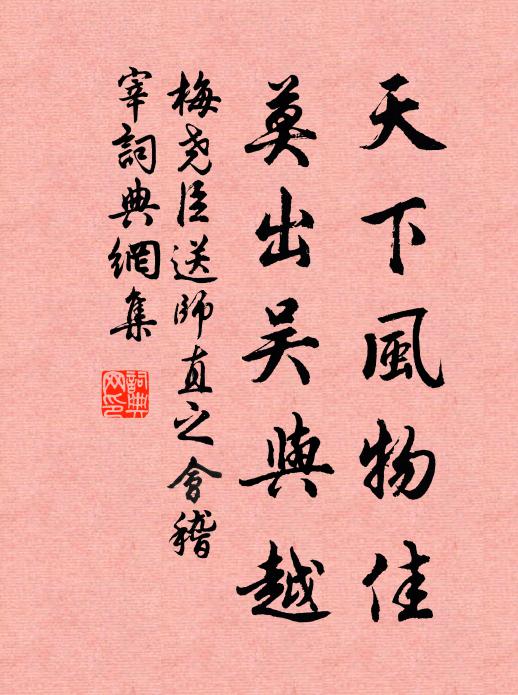 天下風物佳
莫出吴與越
梅尧臣送師直之會稽
宰詞典網集
詞典网印